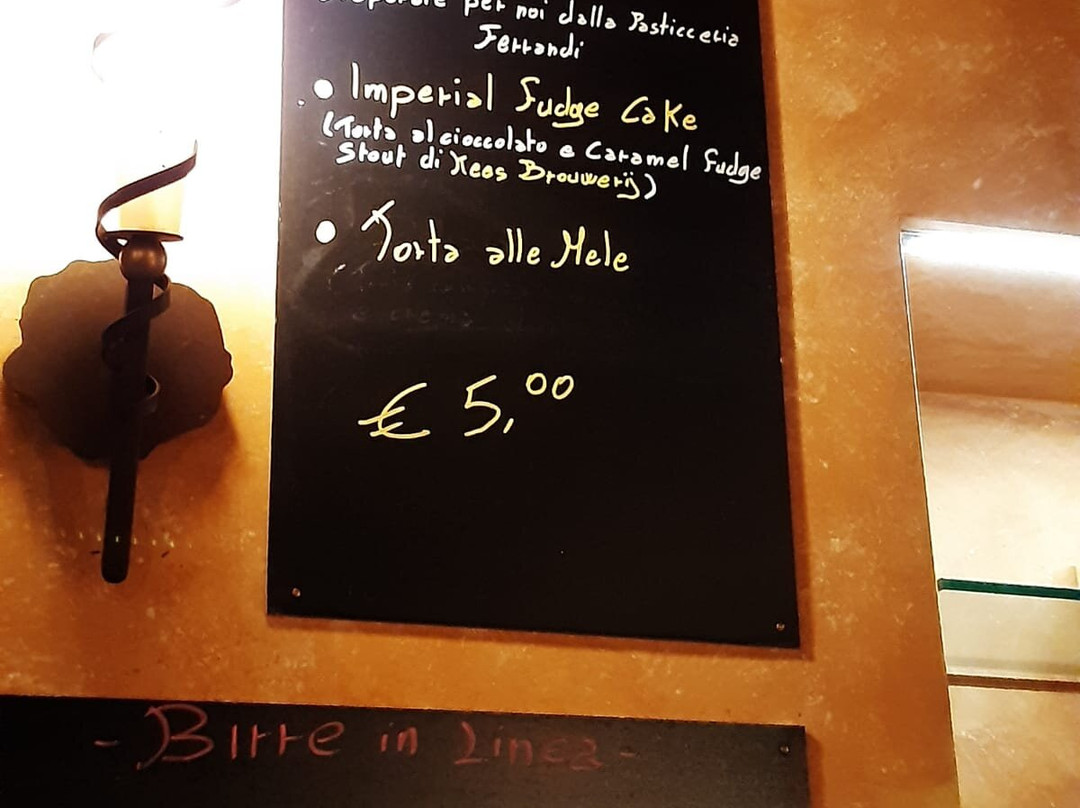 per noi dalla Pasticceria
Ferrandi
• Imperial Fudge Cake
(Torta al cioccolato e Caramel Fudge
Stout di Kees Brouwerij)
• Torta alle Mele
€ 5,00
- Birre in Linea -